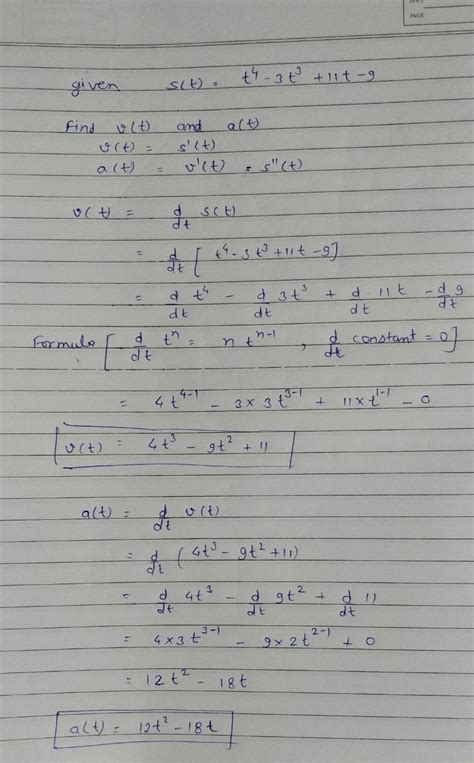 PAGE
given s(t) = t⁴ - 3t³ + 11t - 9
Find v(t) and a(t)
v(t) = s'(t)
a(t) = v'(t) = s''(t)
v(t) = d/dt s(t)
= d/dt [t⁴ - 3t³ + 11t - 9]
= d/dt t⁴ - d/dt 3t³ + d/dt 11t - d/dt 9
Formula [d/dt tⁿ = n tⁿ⁻¹, d/dt constant = 0]
= 4t⁴⁻¹ - 3×3t³⁻¹ + 11×t¹⁻¹ - 0
v(t) = 4t³ - 9t² + 11
a(t) = d/dt v(t)
= d/dt (4t³ - 9t² + 11)
= d/dt 4t³ - d/dt 9t² + d/dt 11
= 4×3t³⁻¹ - 9×2t²⁻¹ + 0
= 12t² - 18t
a(t) = 12t² - 18t